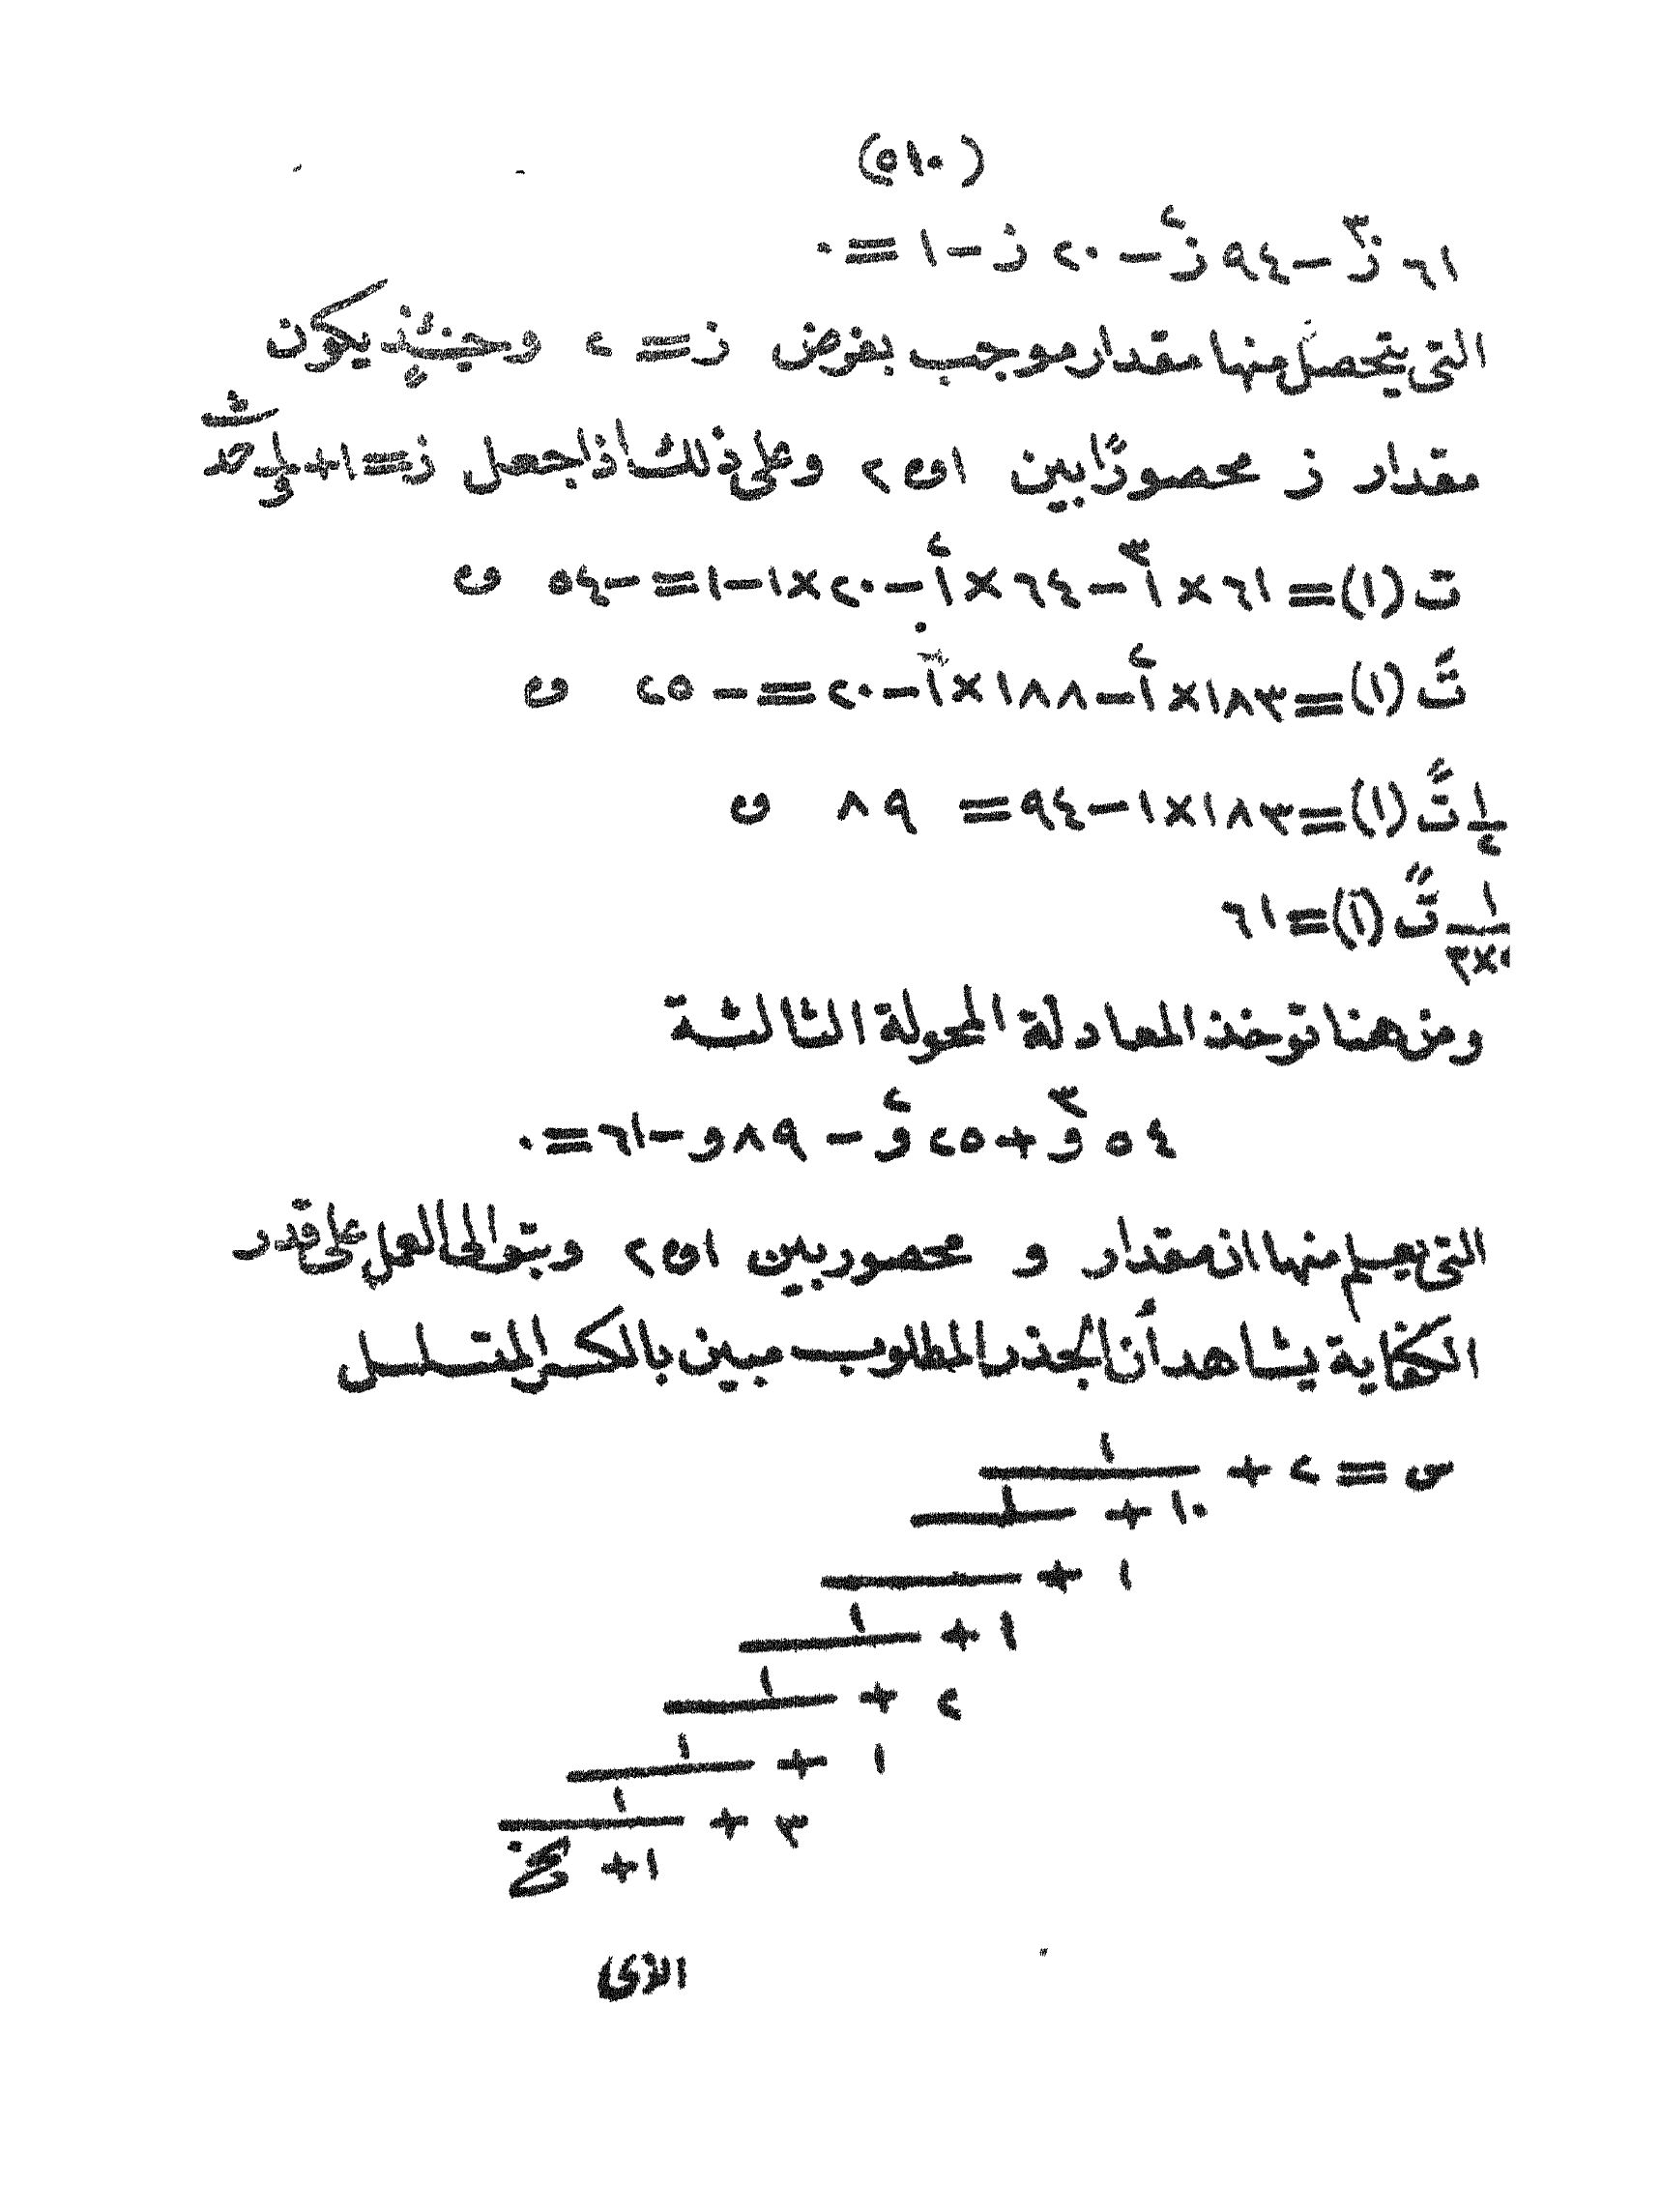 (٥١٠)
٦١ ز٣ − ٩٤ ز٢ − ٢٠ ز − ١ = ٠
التى يتحصل منها مقدار موجب بفرض ز = ٢ وحينئذٍ يكون
مقدار ز محصورًا بين ١ و ٢ وعلى ذلك اذا جعل ز = ١ + ١/و حدث
ت (١) = ٦١ × ١٣ − ٦٤ × ١٢ − ٢٠ × ١ − ١ = − ٥٤ و
تَ (١) = ١٨٣ × ١٢ − ١٨٨ × ١ − ٢٠ = − ٢٥ و
١/٢ تً (١) = ١٨٣ × ١ − ٩٤ = ٨٩ و
١/٣×٢ تً (١) = ٦١
ومن هنا توخذ المعادلة المحولة الثالثة
٥٤ و٣ + ٢٥ و٢ − ٨٩ و − ٦١ = ٠
التى يعلم منها ان مقدار و محصور بين ١ و ٢ وبتوالى العمل على قدر
الكفاية يشاهد أن الجذر المطلوب مبين بالكسر المتسلسل
س = ٢ + ١
١٠ + ١
١ +
١ + ١
٢ + ١
١ + ١
٣ + ١
١ + الخ
الآتى